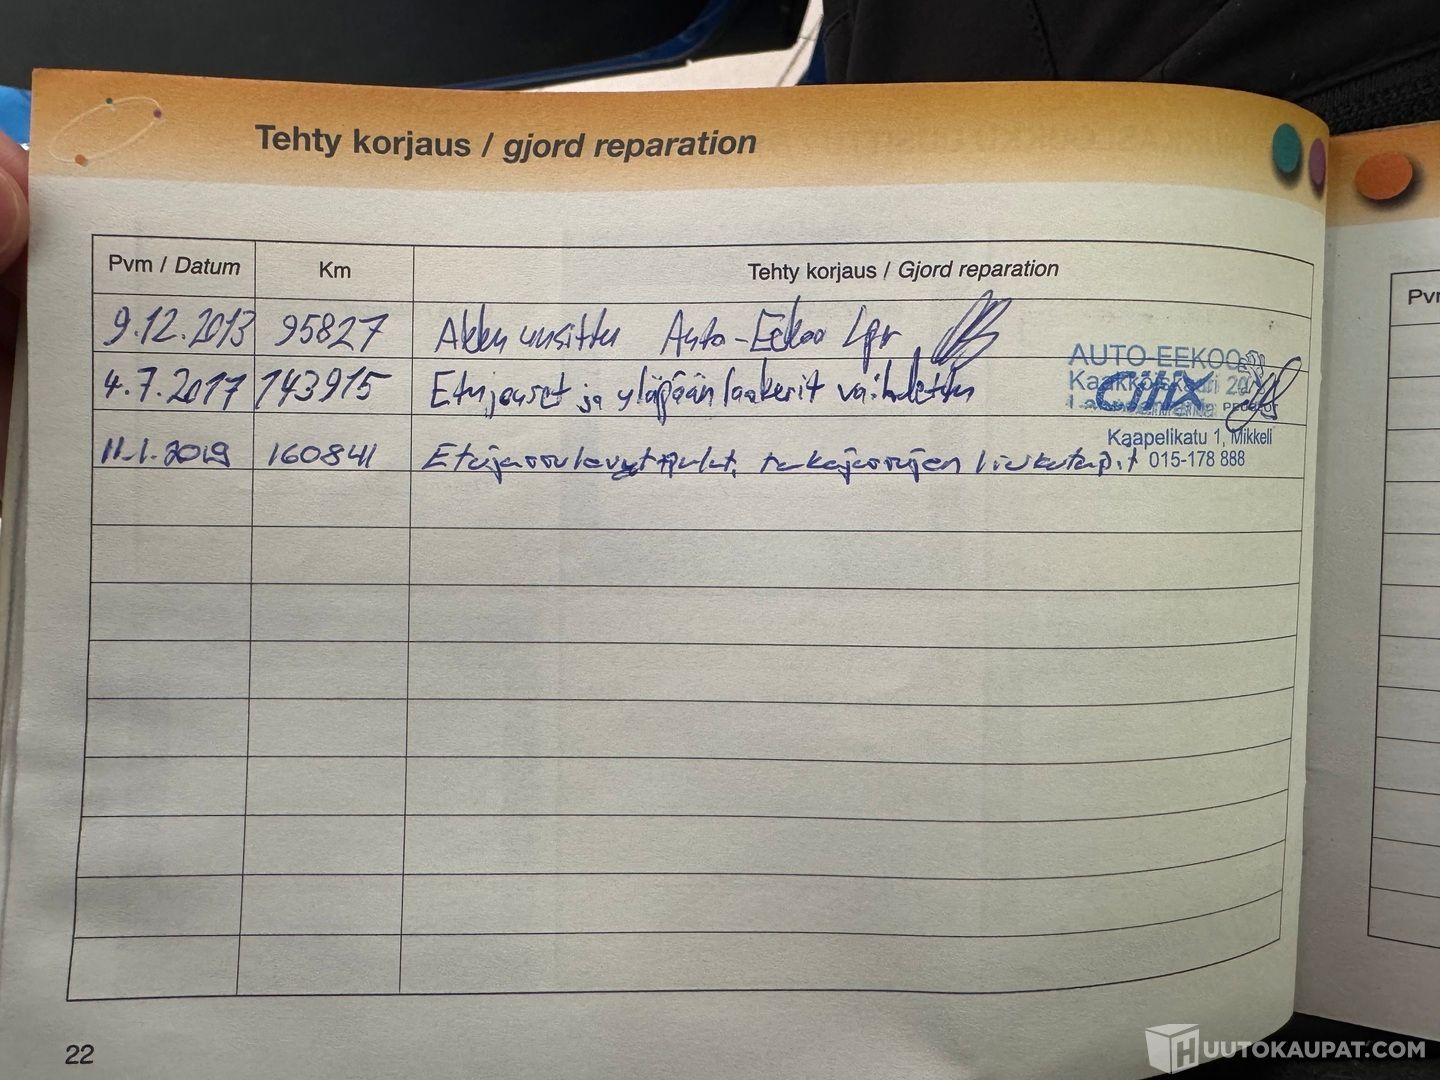 Tehty korjaus / gjord reparation
Pvm / Datum Km Tehty korjaus / Gjord reparation
9.12.2013 95827 Akku uusittu Auto-Eekoo Lpr
AUTO-EEKOO
4.7.2017 143915 Etujouset ja yläpään laakerit vaihdettu
Kaapelikatu 1, Mikkeli
11.1.2019 160841 Etujarrulevyt+palat, takajarrujen liukutapit 015-178 888
22
HUUTOKAUPAT.COM
Pvm